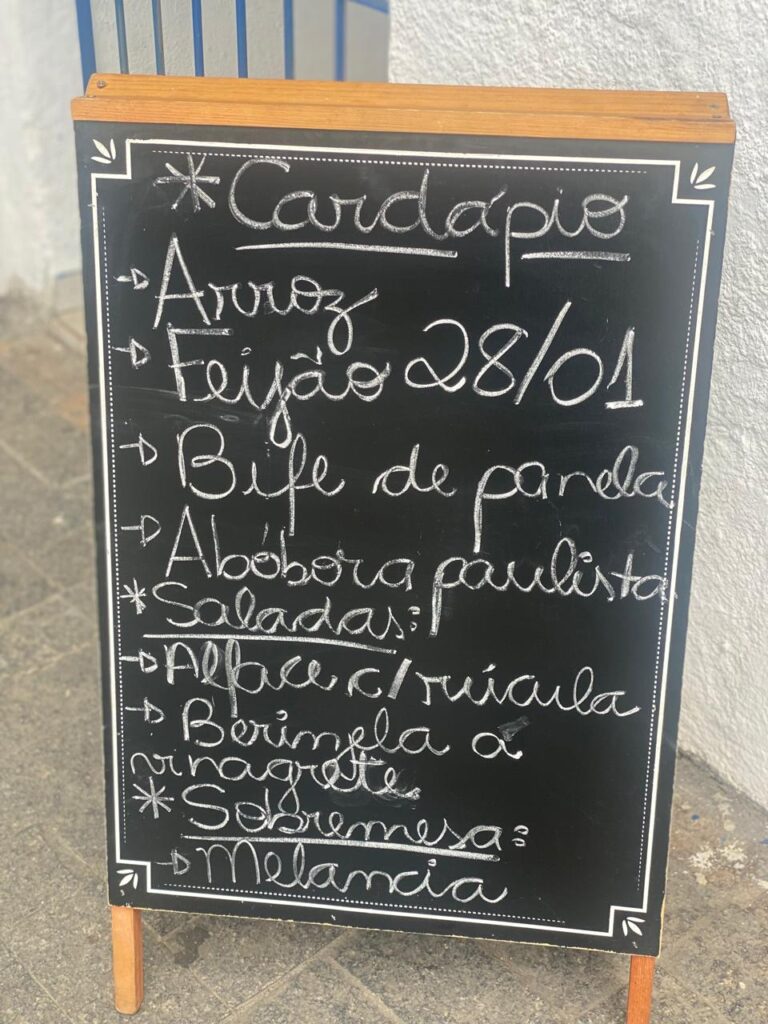 * Cardápio
→ Arroz
→ Feijão 28/01
→ Bife de panela
→ Abóbora paulista
* Saladas:
→ Alface c/ rúcula
→ Berinjela a
vinagrete
* Sobremesa:
→ Melancia